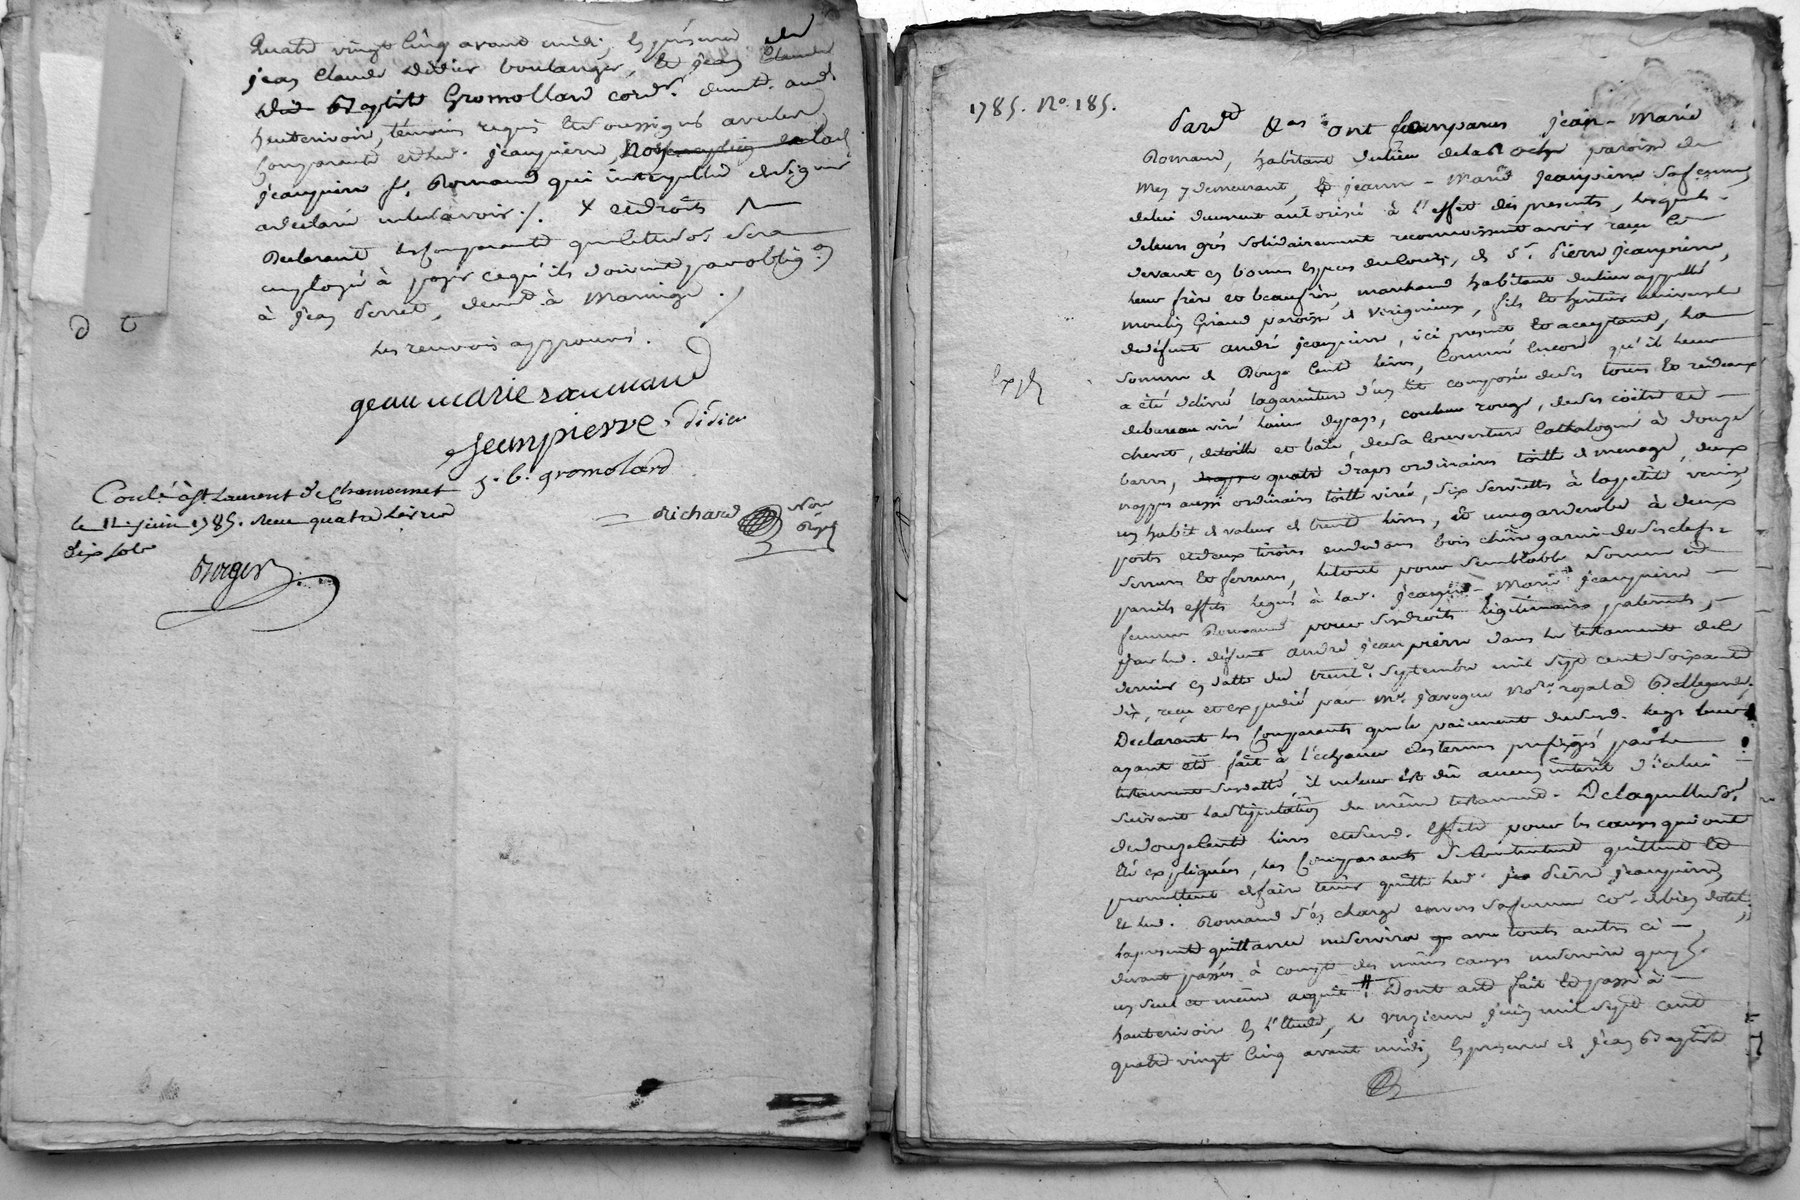 quatre vingt cinq avant midi, en présence de
jean claude didier boulanger, et jean claude
Did Baptiste Gromollard cordr. demt. aud.
hauterivoire, témoins requis et soussignés avec les
comparants et led. jeanpierre, non
jeanpierre fe. Romand qui interpellée de signer
a déclaré ne le savoir ./. X et droits
Declarant les comparants que lad. so. sera
employé à payer ce qu'ils doivent par obligaon
à jean Perret, demt. à Maringe ./
les renvois approuvés.
jean marie roumand
jeanpierre Didier
j. b. gromolard
Richard Nore
Royal
Conlé à St Laurent de Chamousset
le 12 juin 1785. Reçu quatre livres
dix sols
Berger
1785. No. 185.
Pard. ont comparus jean-Marie
Romand, habitant du lieu de la Roche paroisse de
Mey y demeurant, et jeanne-Marie jeanpierre sa femme
de lui duement autorisée à l'effet des presentes, lesquels
de leurs grés solidairement reconnoissent avoir reçu ci
devant en bonnes especes de cours, de sr. Pierre jeanpierre,
leur frère et beaufrère, marchand habitant du lieu appellé
moulin Giraud paroisse de Virigneux, fils et heritier universel
de defunt andré jeanpierre, ici present et acceptant, la
somme de Douze cent livres, comme encore qu'il leur
a été délivré la garniture d'un lit composée de ses tours et rideaux
de bureau viré laine du pays, couleur rouge, de ses coitre et
chevet, de toille et bale, de sa couverture Cathalogne à douze
barres, quatre draps ordinaires toille de menage, deux
nappes aussi ordinaires toille virée, six serviettes à la petite venise
un habit de valeur de trente livres, et une garderobe à deux
portes et deux tiroirs au dedans bois chêne garnie de ses clefs
serrures et ferrures, le tout pour semblable somme et
pareils effets legués à lad. jeanne-Marie jeanpierre
femme Romand pour ses droits légitimaires paternels,
par led. défunt andré jeanpierre dans le testament de ce
dernier en datte du trente septembre mil sept cent soixante
dix, reçu et expédié par Me. javogue Nore. royal à Bellegarde.
Declarant les comparants que le paiement dud. legs leur
ayant été fait à l'échéance des termes prefixés par le
testament susdatté, il ne leur est dû aucun intérêt d'icelui
suivant la stipulation du même testament. De laquelle so.
de douze cents livres et desd. effets pour les causes qui ont
été expliquées, les comparants se contentent quittent et
promettent de faire tenir quitte led. Pierre jeanpierre
Et led. Romand s'en charge envers sa femme co. de bien dotal,
la presente quittance ne servira avec toutes autres ci
devant passées à compte des mêmes causes ne servira que d.
un seul et même acquit. # Dont acte fait et passé à
hauterivoire en l'étude, le onzieme juin mil sept cent
quatre vingt cinq avant midi, en presence de jean Baptiste